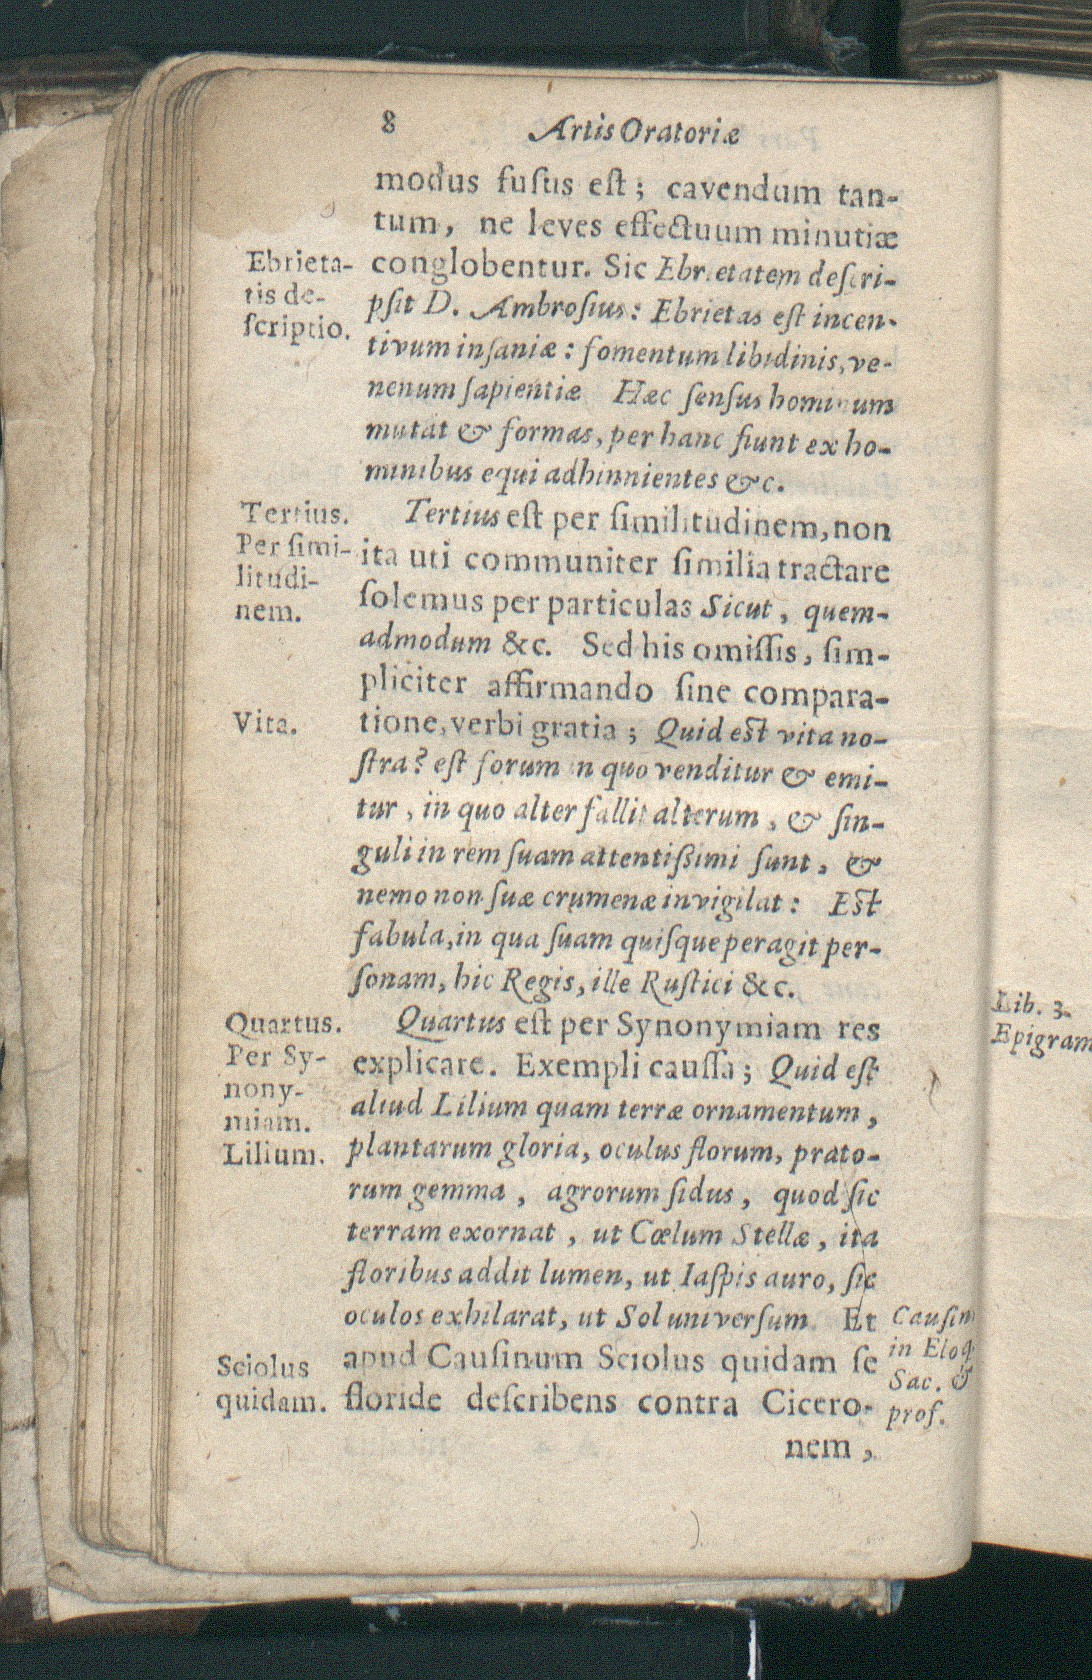 8 Artis Oratoriæ
modus fusus est; cavendum tan-
tum, ne leves effectuum minutiæ
Ebrieta-
tis de-
scriptio.
conglobentur. Sic Ebrietatem descri-
psit D. Ambrosius: Ebrietas est incen-
tivum insaniæ: fomentum libidinis, ve-
nenum sapientiæ Hæc sensus hominum
mutat & formas, per hanc fiunt ex ho-
minibus equi adhinnientes &c.
Tertius.
Per simi-
litudi-
nem.
Tertius est per similitudinem, non
ita uti communiter similia tractare
solemus per particulas Sicut, quem-
admodum &c. Sed his omissis, sim-
pliciter affirmando sine compara-
Vita.
tione, verbi gratia; Quid est vita no-
stra? est forum in quo venditur & emi-
tur, in quo alter fallit alterum, & sin-
guli in rem suam attentissimi sunt, &
nemo non suæ crumenæ invigilat: Est
fabula, in qua suam quisque peragit per-
sonam, hic Regis, ille Rustici &c.
Quartus.
Per Sy-
nony-
miam.
Lilium.
Quartus est per Synonymiam res
explicare. Exempli caussa; Quid est
aliud Lilium quam terræ ornamentum,
plantarum gloria, oculus florum, prato-
rum gemma, agrorum sidus, quod sic
terram exornat, ut Cœlum Stellæ, ita
floribus addit lumen, ut Iaspis auro, sic
oculos exhilarat, ut Sol universum Et
Sciolus
quidam.
apud Causinum Sciolus quidam se
floride describens contra Cicero-
nem,
Causin
in Eloq
Sac. &
prof.
Lib. 3.
Epigram